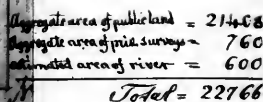 Aggregate area of public land = 21406
Aggregate area of priv. surveys = 760
estimated area of river = 600
Total = 22766